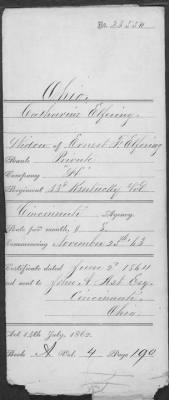 No. 23550
Ohio.
Catharine Elfring
Widow of Ernest F. Elfring
Rank Private
Company "H"
Regiment 23d Kentucky Vol
Cincinnati Agency.
Rate per month, $ 8.
Commencing November 25th '63
Certificate dated June 2d 1864
and sent to John A. Esq.
Cincinnati.
Ohio.
Act 14th July, 1862.
Book A Vol. 4 Page 190